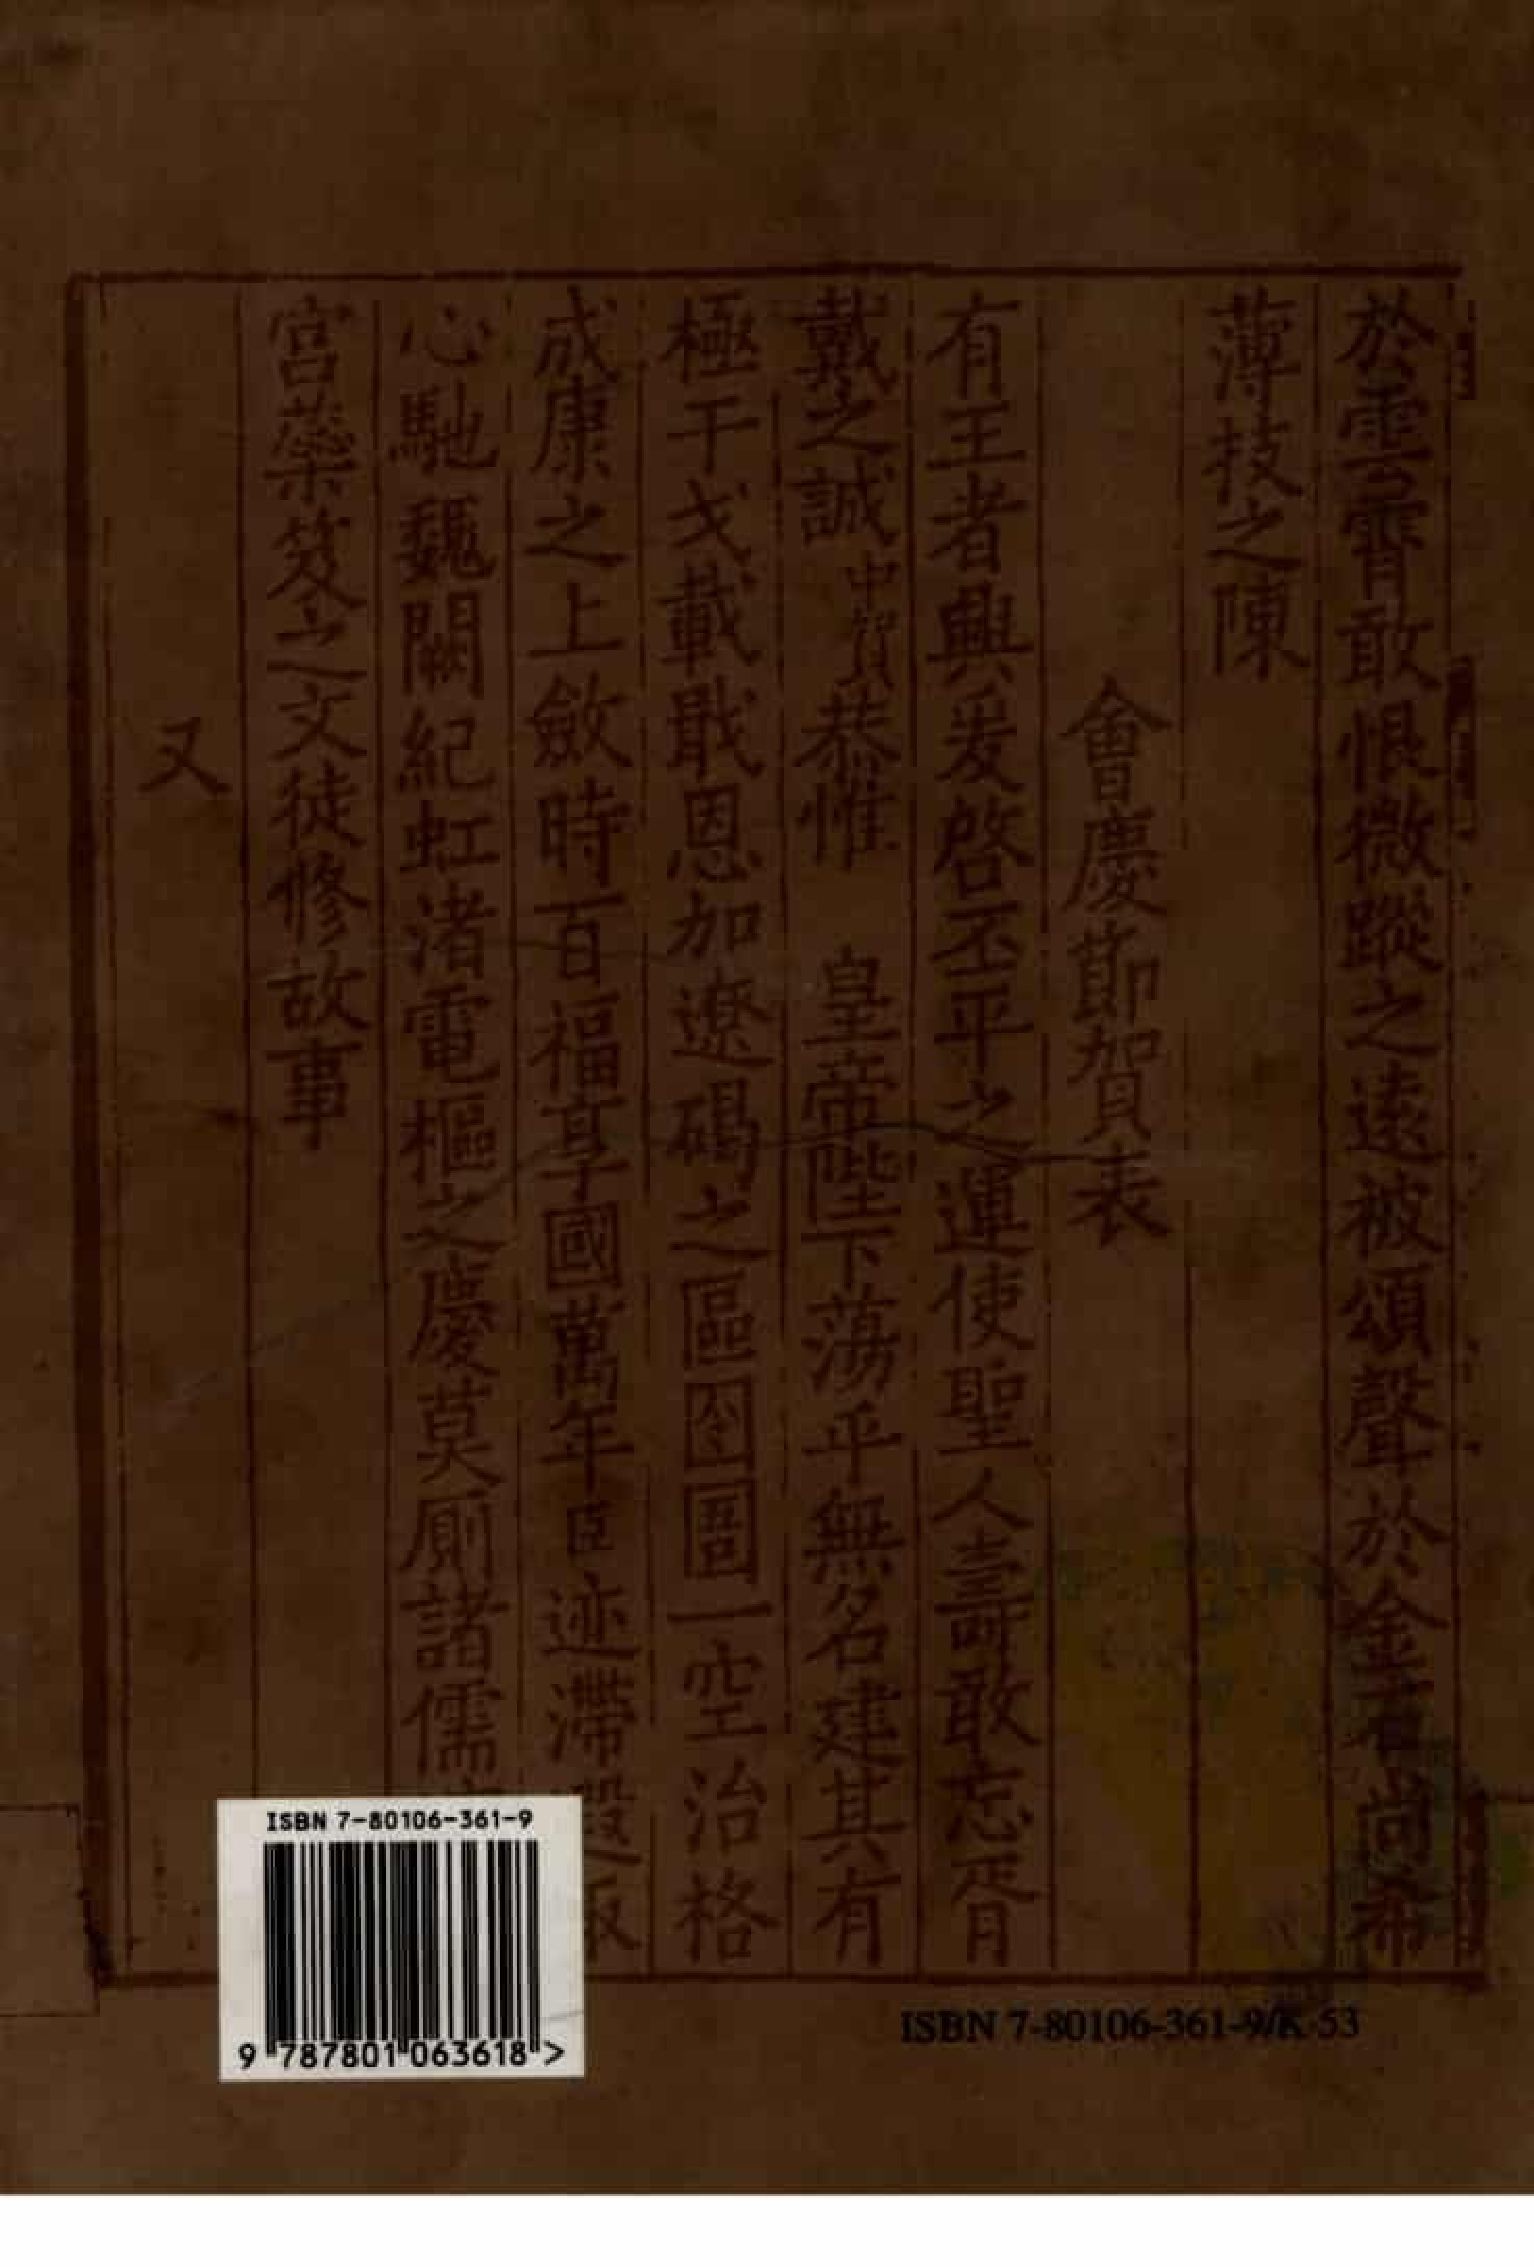 於雲霄敢恨微蹤之遠被頌聲於金石尚希
薄技之陳
會慶節賀表
有王者興爰啓丕平之運使聖人壽敢忘胥
戴之誠中賀恭惟 皇帝陛下蕩乎無名建其有
極干戈載戢恩加遼碣之區囹圄一空治格
成康之上斂時百福享國萬年臣迹滯
心馳魏闕紀虹渚電樞之慶莫厠諸儒
宮蘂笈之文徒修故事
又
ISBN 7-80106-361-9
9 787801 063618 >
ISBN 7-80106-361-9/K·53